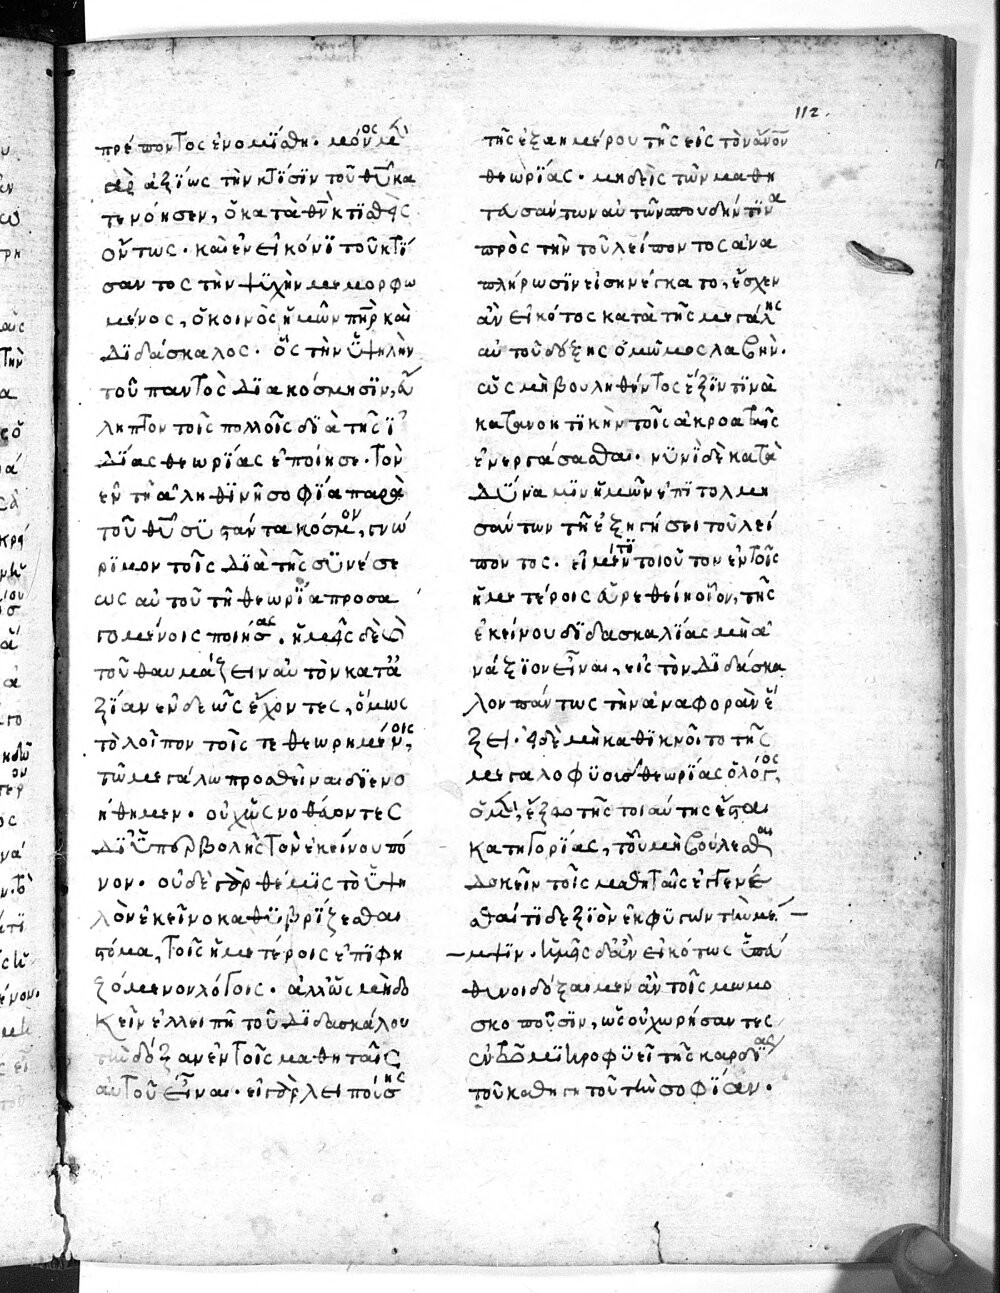 πρέποντος ἐνομίσθη· μόνος μὲν
γὰρ ἀξίως τὴν κτίσϊν τοῦ θῦ κα
τενόησεν, ὁ κατὰ θν κτϊσθεὶς
ὄντως· καὶ ἐν εἰκόνϊ τοῦ κτΐ
σαντος τὴν ψϋχὴν μεμορφω
μένος, ὁ κοινὸς ἡμῶν πηρ καὶ
δϊδάσκαλος· ὃς τὴν ὑψηλὴν
τοῦ παντὸς δϊακόσμησϊν, εὔ
ληπτον τοῖς πολλοῖς δϊὰ τῆς ϊ
δΐας θεωρΐας ἐποίησε· τὸν
ἐν τῆ ἀληθϊνῆ σοφΐα παρὰ
τοῦ θῦ σϋστάντα κόσμον, γνώ
ρϊμον τοῖς δϊὰ τῆς σϋνέσε
ως αὐτοῦ τῆ θεωρΐα προσα
γομένοις ποιήσας. ἡμεῖς δὲ οἱ
τοῦ θαυμάζειν αὐτὸν κατ' ἀ
ξΐαν ἐνδεῶς ἔχοντες, ὅμως
τὸ λοῖπον τοῖς τεθεωρημένοις,
τῶ μεγάλω προσθεῖναι δϊενο
ήθημεν· οὐχ ὡς νοθεύοντες
δϊ' ὑπερβολῆς τὸν ἐκείνου πό
νον· οὐδὲ γὰρ θέμϊς τὸ ὑψη
λὸν ἐκεῖνο καθϋβρΐζεσθαι
στόμα, τοῖς ἡμετέροις ἐπϊφη
ζόμενον λόγοις· ἀλλ' ὡς μὴ δο
κεῖν ἐλλειπῆ τοῦ δϊδασκάλου
τὴν δόξαν ἐν τοῖς μαθηταῖς
αὐτοῦ εἶναι· εἰ γὰρ λειπούσης
τῆς ἑξαημέρου τῆς εἰς τὸν ἄνον
θεωρΐας· μηδεὶς τῶν μαθη
τευσάντων αὐτῶ σπουδήν τϊνα
πρὸς τὴν τοῦ λείποντος ἀνα
πλήρωσϊν εἰσηνέγκατο, ἔσχεν
ἂν εἰκότος κατὰ τῆς μεγάλης
αὐτοῦ δόξης ὁ μῶμος λαβὴν·
ὡς μὴ βουληθέντος ἕξϊν τϊνὰ
κατανοητϊκὴν τοῖς ἀκροαταῖς
ἐνεργάσασθαι· νϋνὶ δὲ κατὰ
δΰναμϊν ἡμῶν ἐπϊτολμη
σάντων τῆ ἐξηγήσει τοῦ λεί
ποντος· εἰ μέν τϊ τοιοῦτον ἐν τοῖς
ἡμετέροις εὑρεθείη οἷον, τῆς
ἐκείνου δϊδασκαλΐας μὴ ἀ
νάξϊον εἶναι, εἰς τὸν δϊδάσκα
λον πάντως τὴν ἀναφορὰν ἕ
ξει· εἰ δὲ μὴ καθϊκνοῖτο τῆς
μεγαλοφϋοῦς θεωρΐας ὁ λόγος,
ὁ μὲν, ἔξω τῆς τοιαύτης ἔσται
κατηγορΐας, τοῦ μὴ βούλεσθαι
δοκεῖν τοῖς μαθηταῖς ἐγγενέ
σθαί τϊ δεξϊὸν ἐκφϋγὼν τὴν μέ
μψϊν· ἡμεῖς δ' ἂν εἰκότως ὑπεύ
θϋνοι δόξαιμεν ἂν τοῖς μωμο
σκοποῦσϊν, ὡς οὐ χωρήσαντες
ἐν τῶ μϊκροφϋεῖ τῆς καρδΐας
τοῦ καθηγητοῦ τὴν σοφΐαν·